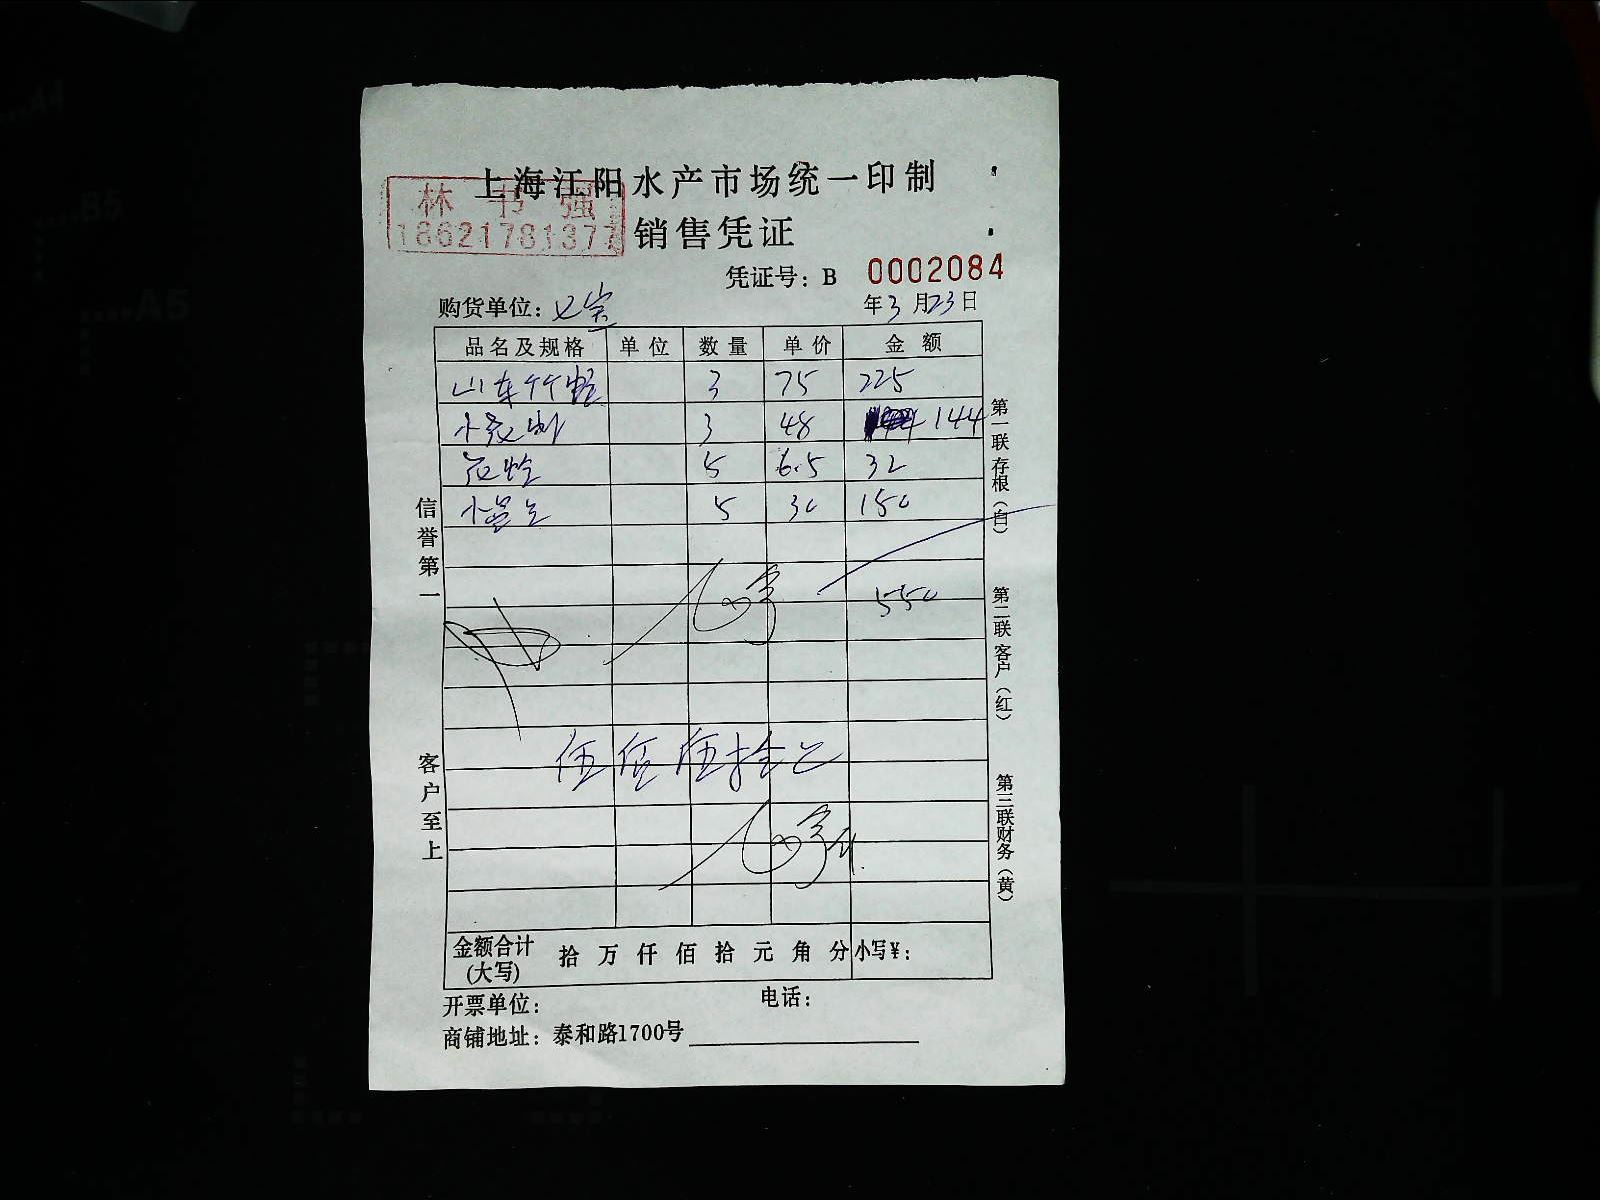 上海江阳水产市场统一印制
林书强
18621781377
销售凭证
凭证号：B 0002084
购货单位：七宝 年3月23日
品名及规格 单位 数量 单价 金额
山东竹蛏 3 75 225
3 48 144
花蛤 5 6.5 32
5 30 150
550
伍佰伍拾元
金额合计(大写) 拾 万 仟 佰 拾 元 角 分 小写¥：
开票单位： 电话：
商铺地址：泰和路1700号
信誉第一
客户至上
第一联存根（白）
第二联客户（红）
第三联财务（黄）